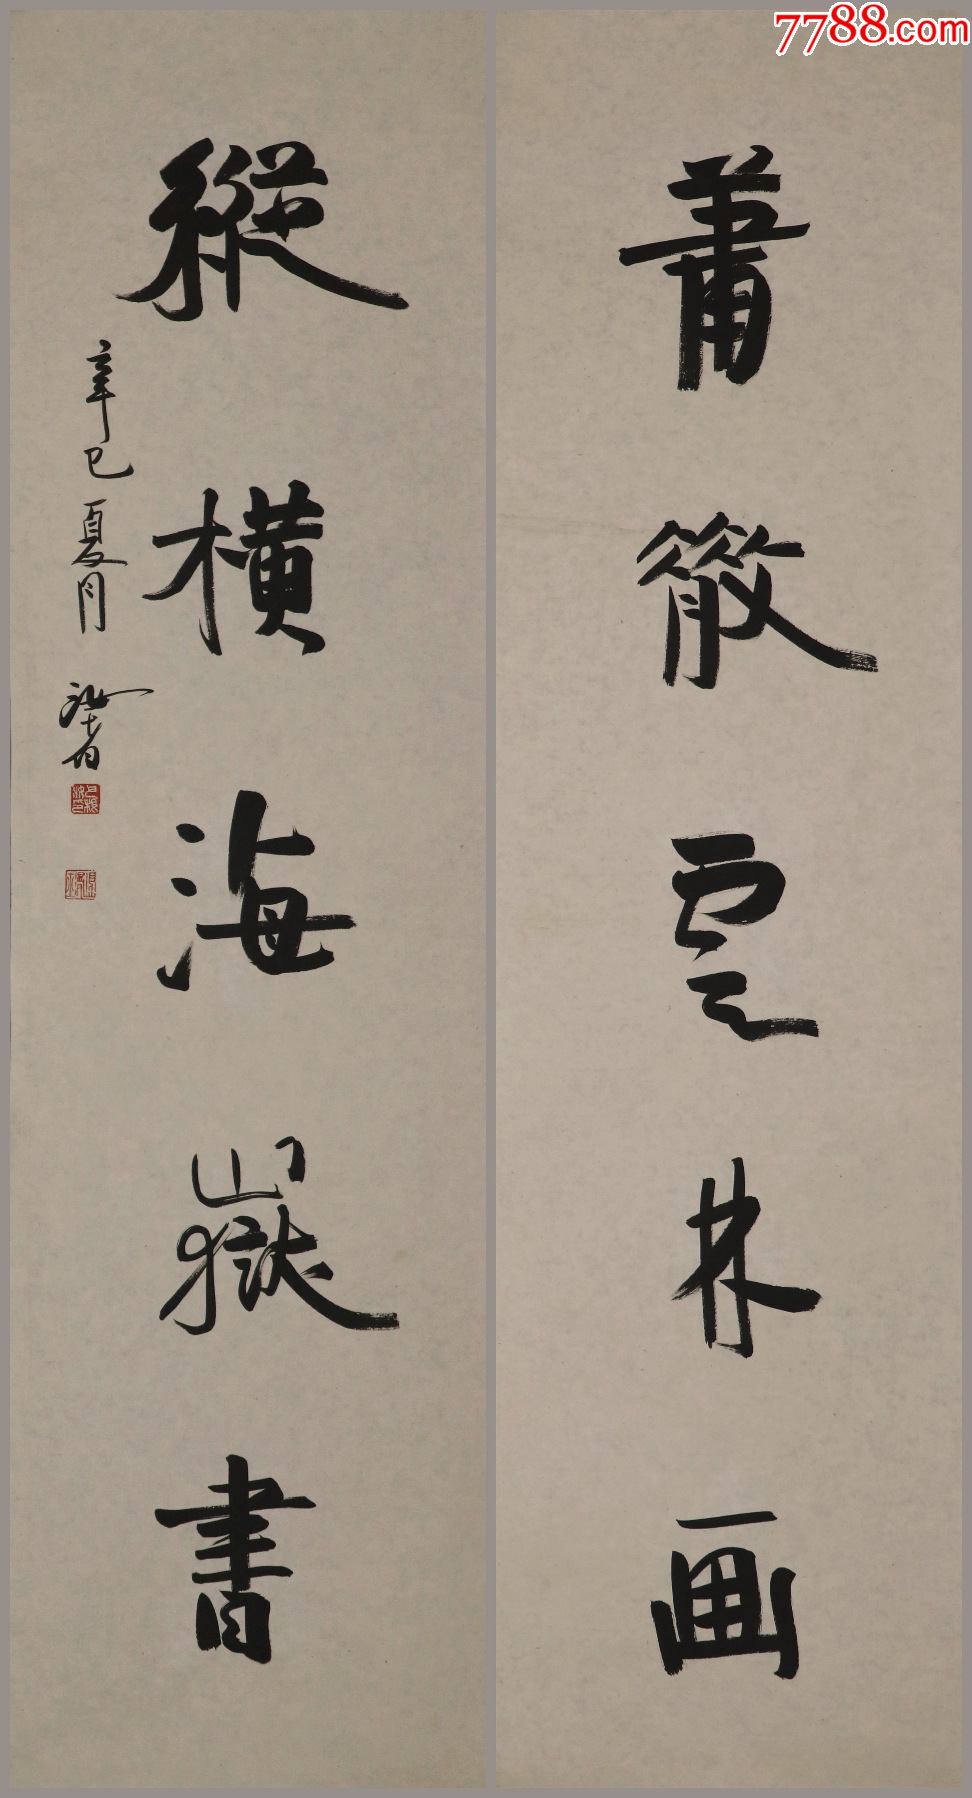 7788.com
萧散雲林画
縱橫海嶽書
辛巳夏月